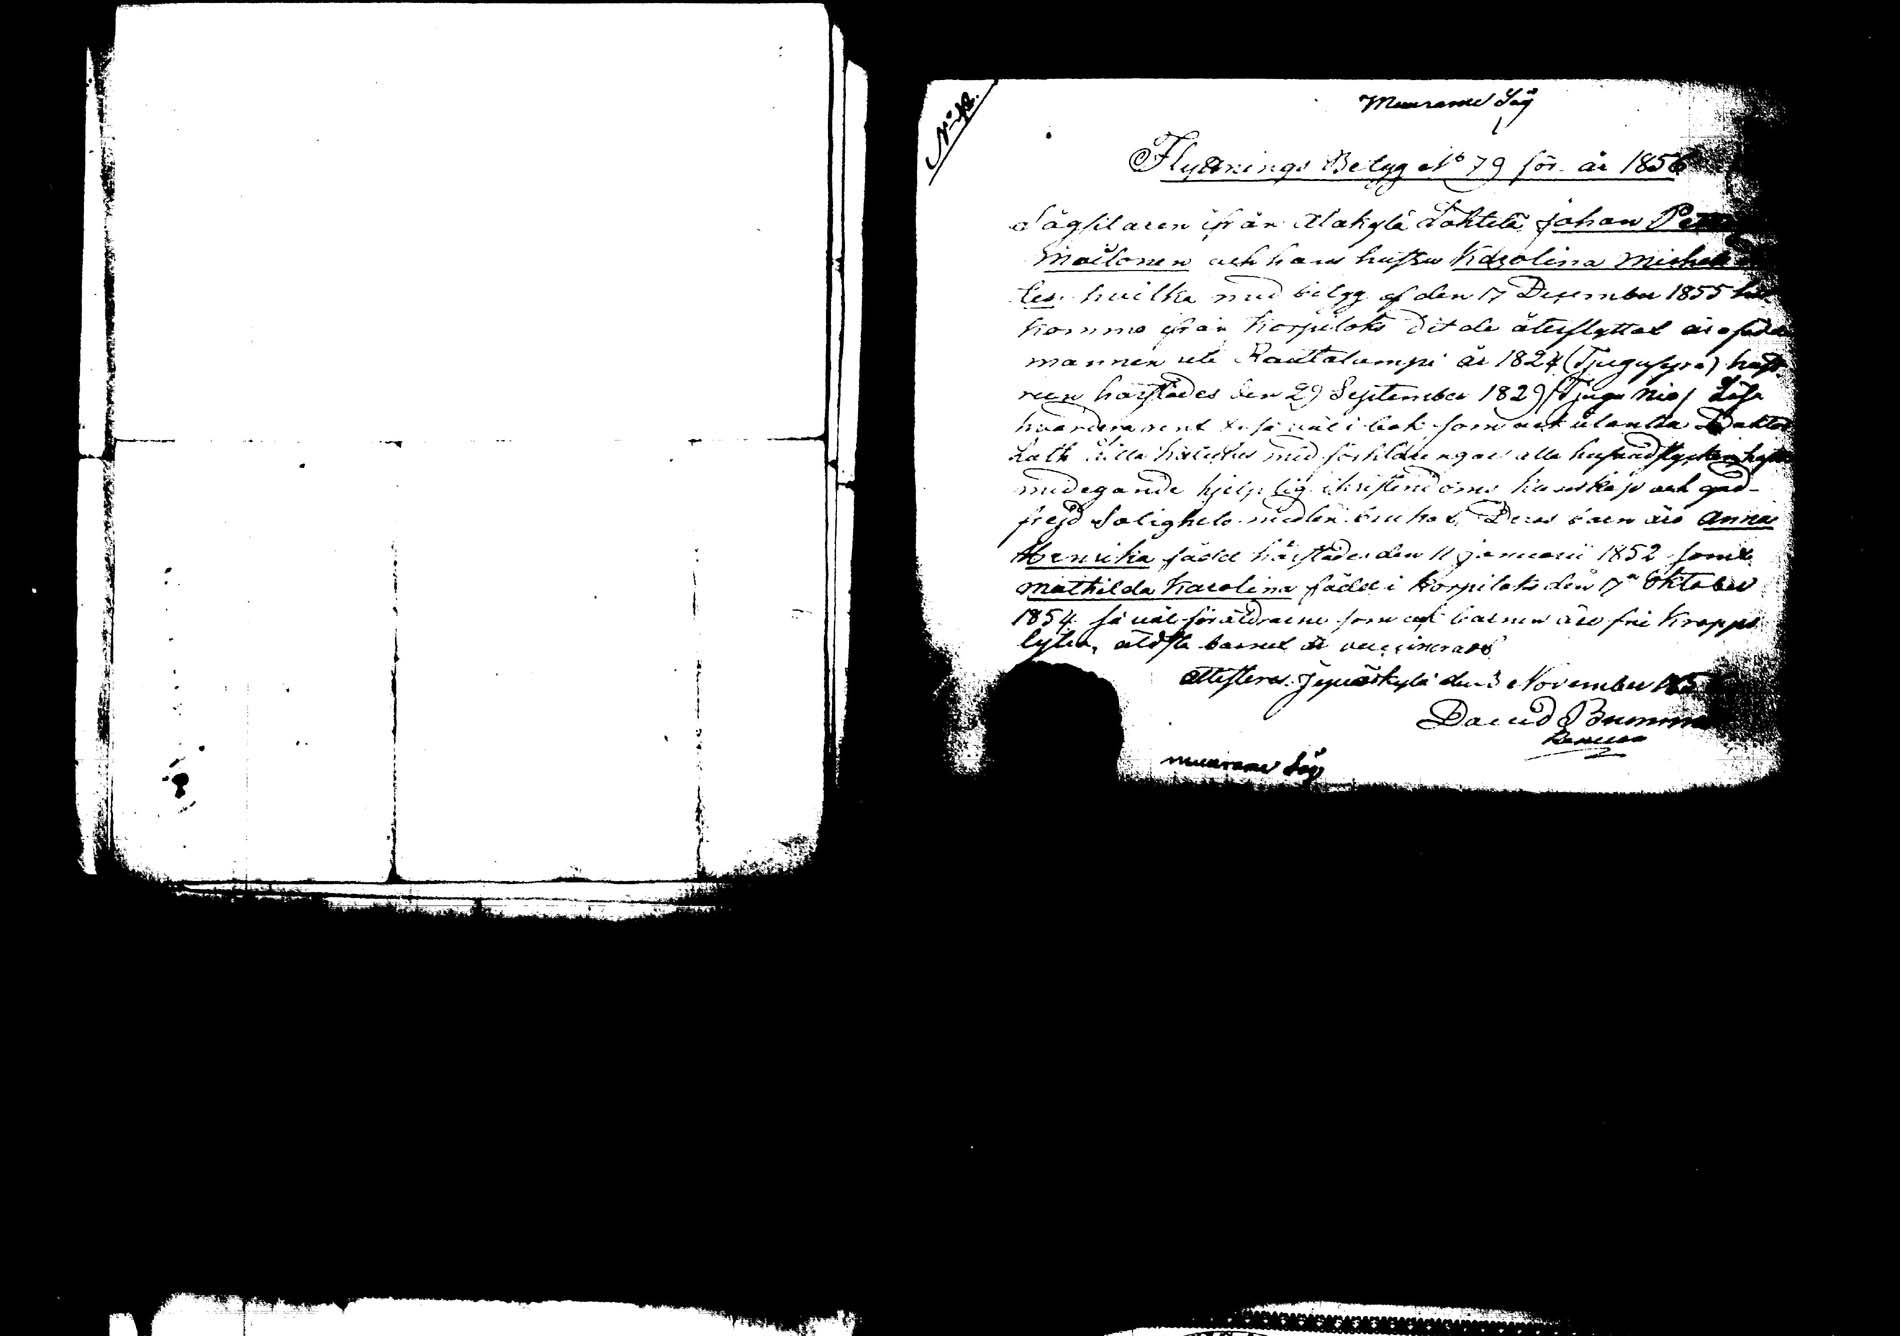 N:o 42.
Muurame Såg
Flyttnings Betyg No 79 för år 1856
Sågfilaren ifrån Alakylä Lahtela Johan Petter
Moilonen och hans hustru Karolina Michels
ter hvilka med betyg af den 17 December 1855 hit
kommo ifrån Korpilaks dit de återflyttat äro födde
mannen uti Rautalampi år 1824 (Tjugufyra) hust
run härstädes den 29 September 1829 (Tjugu Nio) Läsa
hvardera rent så väl i bok som ock utantill Doktor
Luth Lilla Katches med förklaringar alla hufvudstycken
med egande hjelplig christendoms kunskap och god
frejd Salighets medlen brukat, Deras barn äro Anna
Henrika född härstädes den 11 Januarii 1852 samt
Mathilda Karolina född i Korpilaks den 7n Oktober
1854. så väl föräldrarne som ock barnen äro fri Kropps
lyten, äldsta barnet är vaccineradt
attesteras. Jyväskylä den 3 November 185
David
Muurame Såg